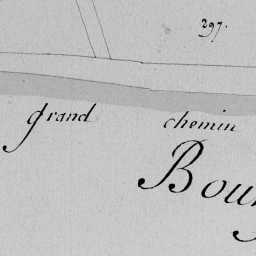 297.
grand chemin
Bou